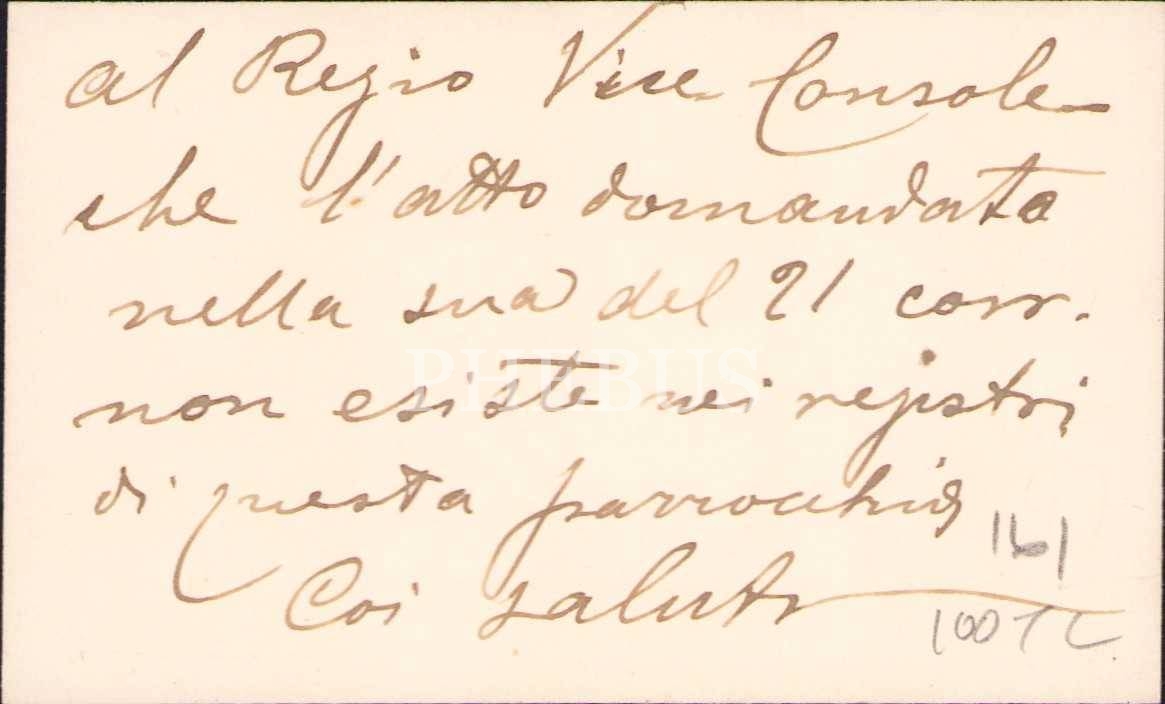 al Regio Vice Console
che l'atto domandato
nella sua del 21 corr.
PHEBUS
non esiste nei registri
di questa parrocchia
161
Coi saluti
100 TL